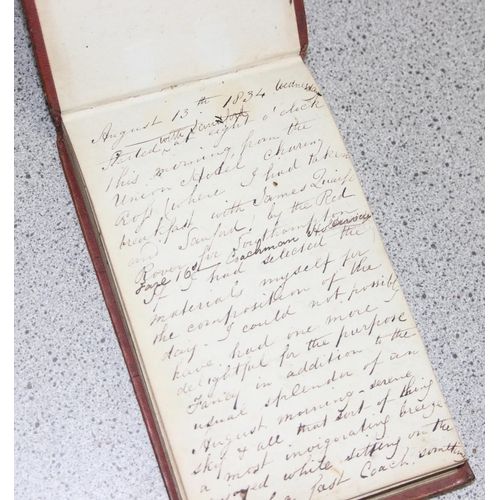 August 13th 1834 Wednesday
with Sanford
Started at eight o'clock
this morning from the
Union Hotel Charing
X (where I had taken
breakfast with James
and Sanford) by the Red
Rover for Southampton
Fare 16s/ Coachman
If I had selected the
material myself for
the composition of the
day. I could not possibly
have had one more
delightful for the purpose
Fancy in addition to the
usual splendor of an
August morning - serene
sky & all that sort of thing
a most invigorating breeze
enjoyed while sitting on the
of a fast Coach. something